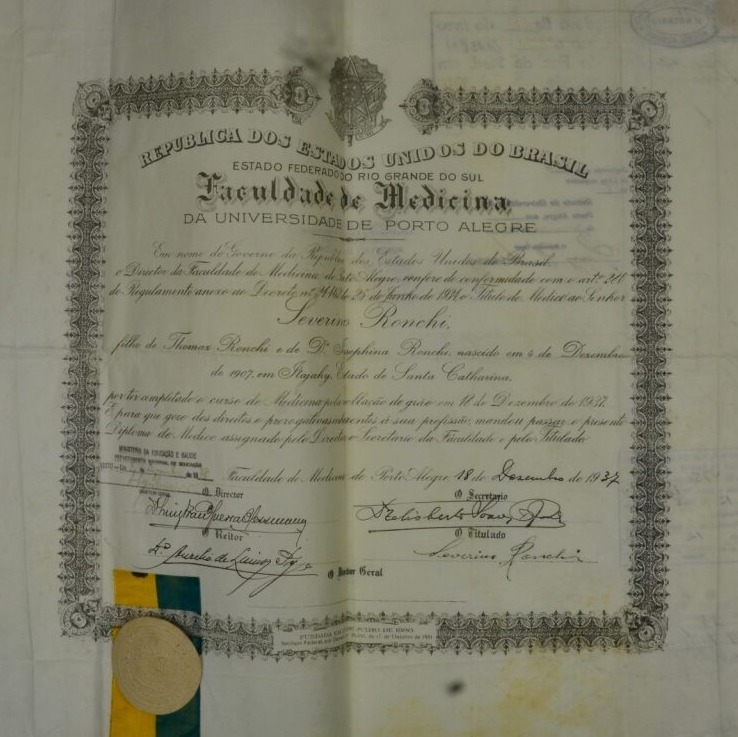 REPUBLICA DOS ESTADOS UNIDOS DO BRASIL
ESTADO FEDERADO DO RIO GRANDE DO SUL
Faculdade de Medicina
DA UNIVERSIDADE DE PORTO ALEGRE
Em nome do Governo da Republica dos Estados Unidos do Brasil,
o Director da Faculdade de Medicina de Porto Alegre, confere de conformidade com o artº
do Regulamento anexo ao Decreto nº de 25 de Junho de o Titulo de Medico ao Senhor
Severino Ronchi,
filho de Thomaz Ronchi e de Dª Josephina Ronchi, nascido em 4 de Dezembro
de 1907, em Itajahy, Estado de Santa Catharina,
por ter completado o curso de Medicina pela collação de gráo em 18 de Dezembro de 1937.
E para que goze dos direitos e prerogativas inherentes á sua profissão, mandou passar o presente
Diploma de Medico assignado pelo Director e Secretario da Faculdade e pelo Titulado
MINISTERIO DA EDUCAÇÃO E SAUDE
Faculdade de Medicina de Porto Alegre, 18 de Dezembro de 1937
O Director
O Secretario
O Reitor
O Titulado
Severino Ronchi
O Director Geral